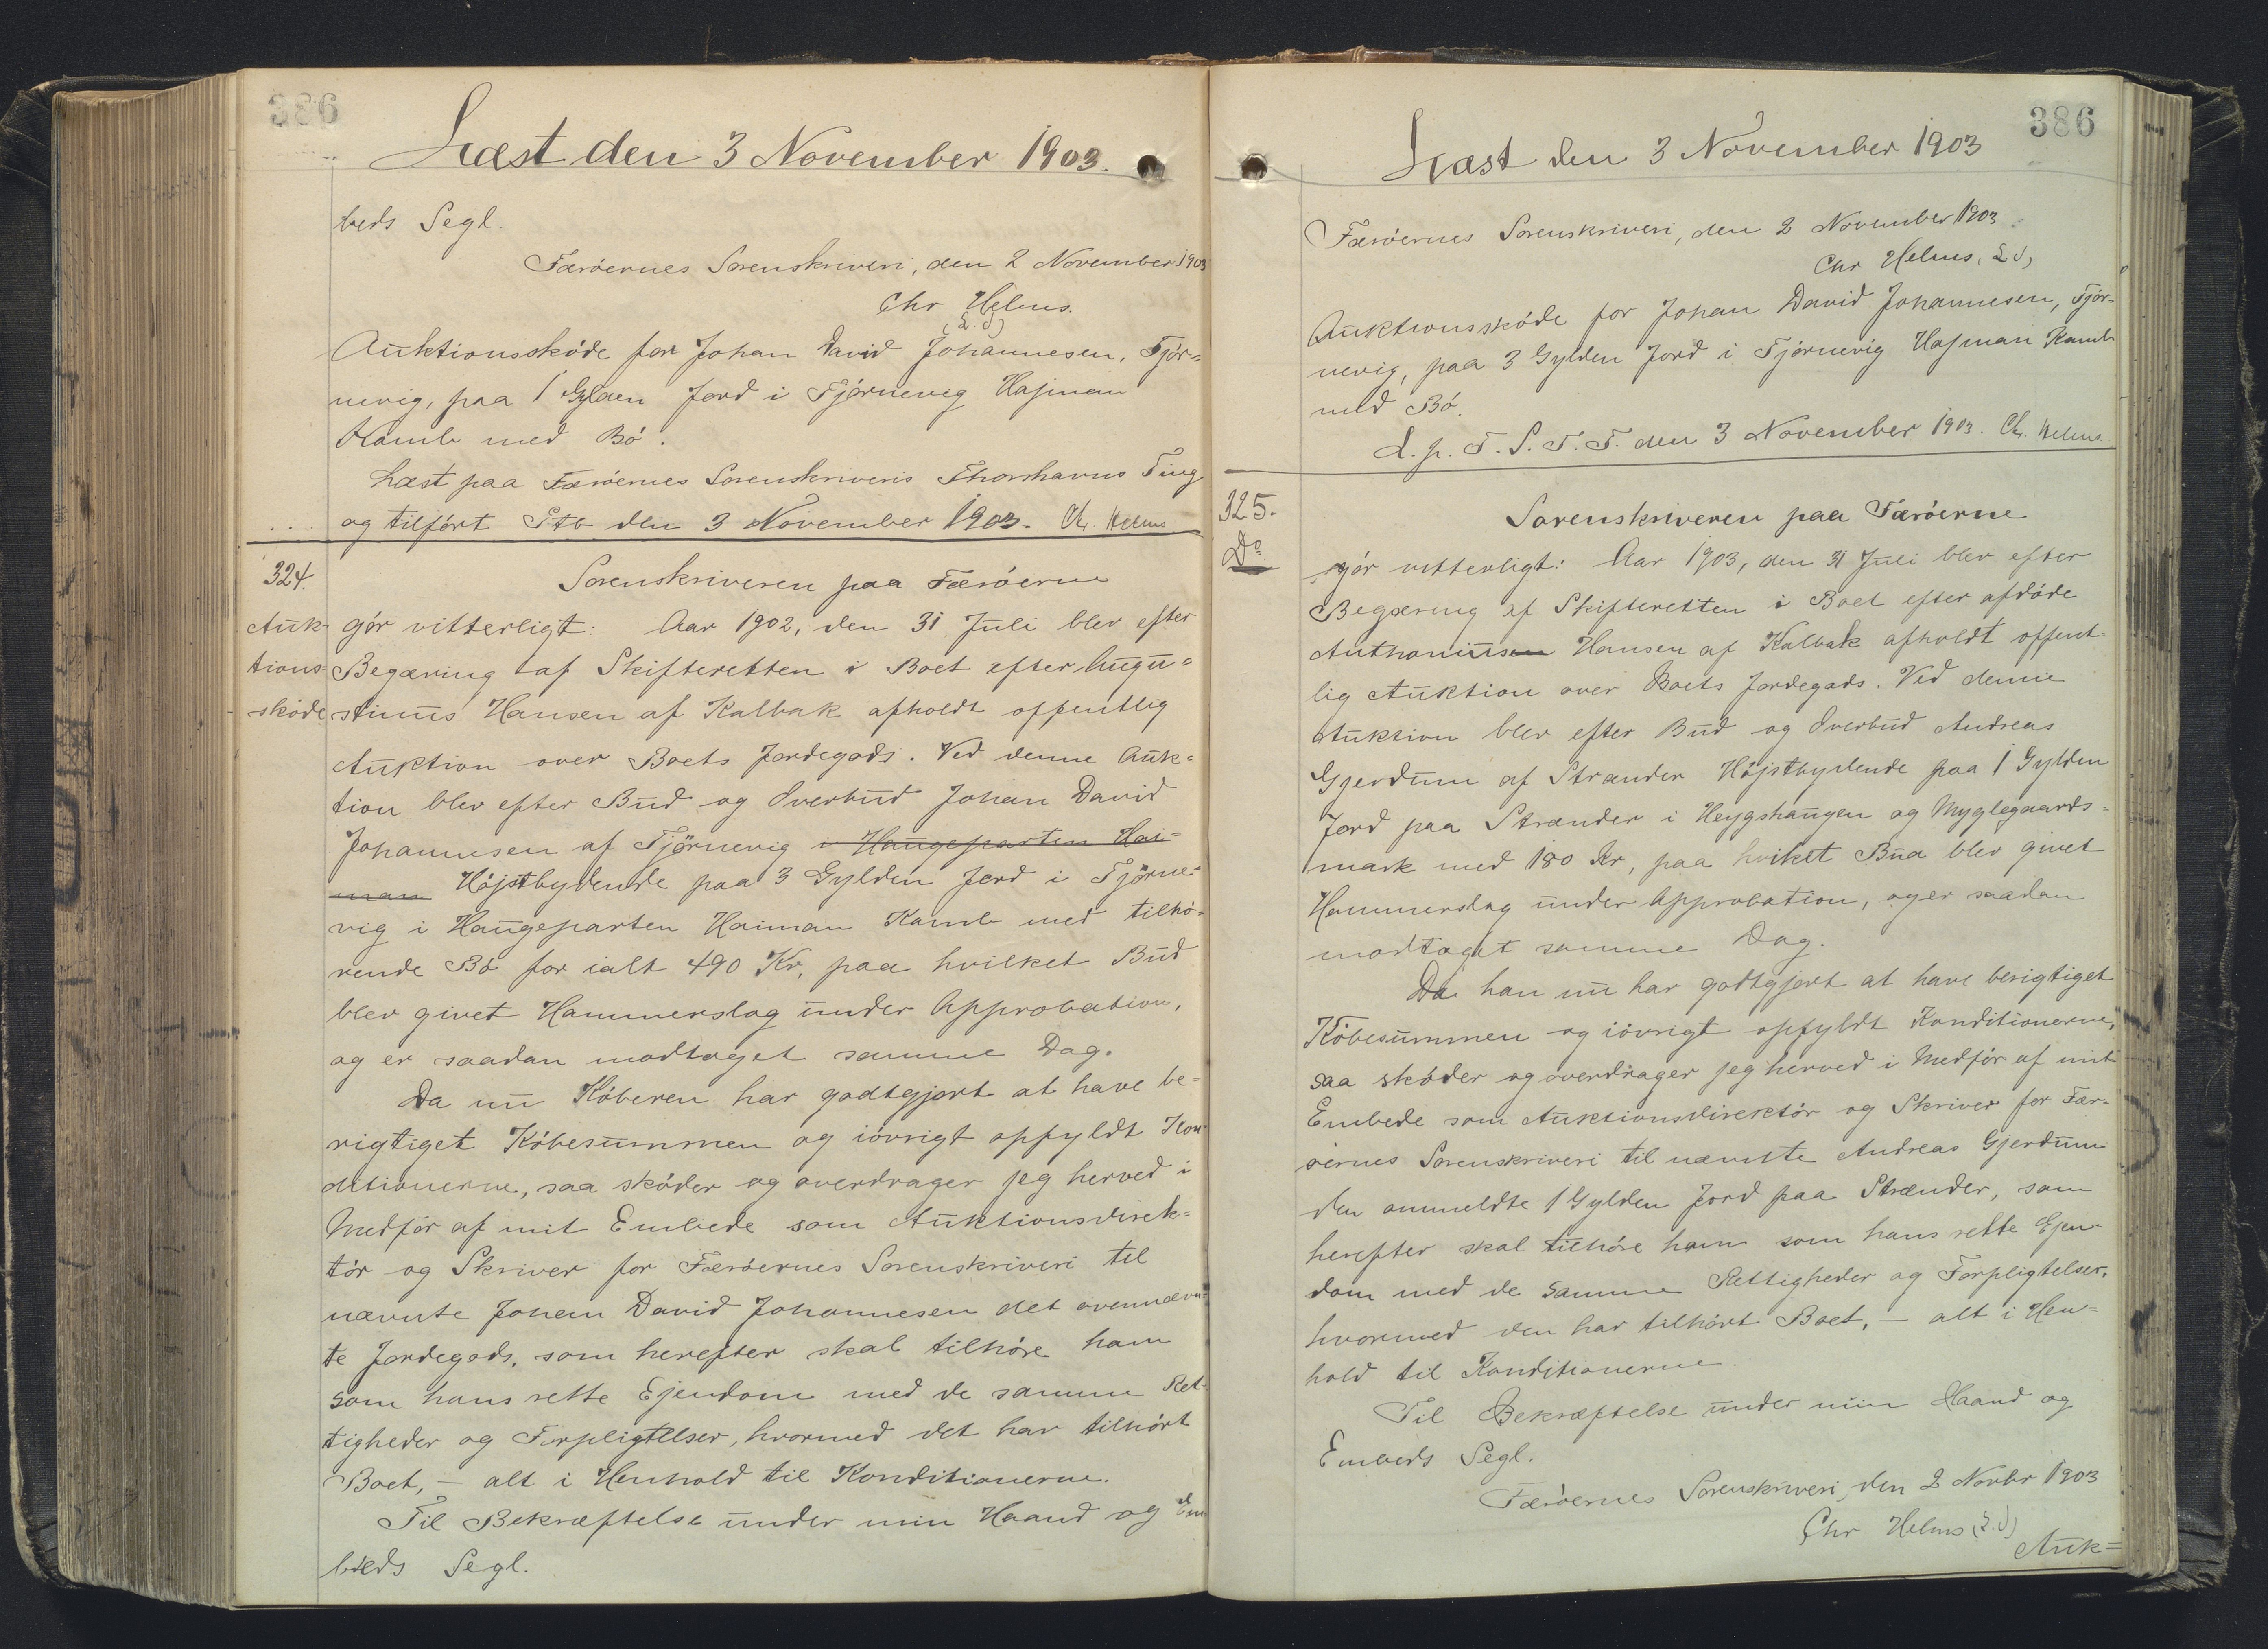 386
Læst den 3 November 1903.
beds Segl.
Færöernes Sorenskriveri, den 2 November 1903
Chr Helms.
(L. S)
Auktionsskøde for Johan David Johannesen, Tjör=
nevig, paa 1 Gylden Jord i Tjörnevig Hajman
Kamb med Bö.
Læst paa Færöernes Sorenskriveris Thorshavns Ting
og tilfört Ptb den 3 November 1903. Ch. Helms
324.
Auk-
tions=
sköde
Sorenskriveren paa Færöerne
gör vitterligt: Aar 1902, den 31 Juli blev efter
Begæring af Skifteretten i Boet efter Augu=
stinus Hansen af Kalbak afholdt offentlig
Auktion over Boets Jordegods. Ved denne Auk=
tion blev efter Bud og Overbud Johan David
Johannesen af Tjörnevig i Haugeparten Hai=
man Höjstbydende paa 3 Gylden Jord i Tjörne=
vig i Haugeparten Haiman Kamb med tilhö=
rende Bö for ialt 490 Kr, paa hvilket Bud
blev givet Hammerslag under Approbation,
og er saadan modtaget samme Dag.
Da nu Köberen har godtgjort at have be=
rigtiget Köbesummen og iövrigt opfyldt Kon=
ditionerne, saa sköder og overdrager jeg herved i
Medför af mit Embede som Auktionsdirek=
tör og Skriver for Færöernes Sorenskriveri til
nævnte Johan David Johannesen det ovennævn=
te Jordegods, som herefter skal tilhöre ham
som hans rette Ejendom med de samme Ret-
tigheder og Forpligtelser, hvormed det har tilhört
Boet, — alt i Henhold til Konditionerne.
Til Bekræftelse under min Haand og Em
beds Segl.
386
Læst den 3 November 1903
Færöernes Sorenskriveri, den 2 November 1903
Chr Helms, L S)
Auktionsskøde for Johan David Johannesen, Tjör=
nevig, paa 3 Gylden Jord i Tjörnevig Hajman Kamb
med Bö.
L. p. F. S. T. T. den 3 November 1903. Ch. Helms
325.
Do
Sorenskriveren paa Færöerne
gör vitterligt: Aar 1903, den 31 Juli blev efter
Begæring af Skifteretten i Boet efter afdöde
Anthonius Hansen af Kalbak afholdt offent=
lig Auktion over Boets Jordegods. Ved denne
Auktion blev efter Bud og Overbud Andreas
Gjerdum af Strænder Höjstbydende paa 1 Gylden
Jord paa Strænder i Heygshaugen og Myglegaards=
mark med 180 Kr, paa hvilket Bud blev givet
Hammerslag under Approbation, og er saadan
modtaget samme Dag.
Da han nu har godtgjort at have berigtiget
Köbesummen og iövrigt opfyldt Konditionerne,
saa sköder og overdrager jeg herved i Medför af mit
Embede som Auktionsdirektör og Skriver for Fær=
öernes Sorenskriveri til nævnte Andreas Gjerdum
den ommeldte 1 Gylden Jord paa Strænder, som
herefter skal tilhöre ham som hans rette Ejen=
dom med de samme Rettigheder og Forpligtelser,
hvormed den har tilhört Boet, — alt i Hen=
hold til Konditionerne.
Til Bekræftelse under min Haand og
Embeds Segl.
Færöernes Sorenskriveri, den 2 Novbr 1903
Chr Helms (L. S)
Auk=